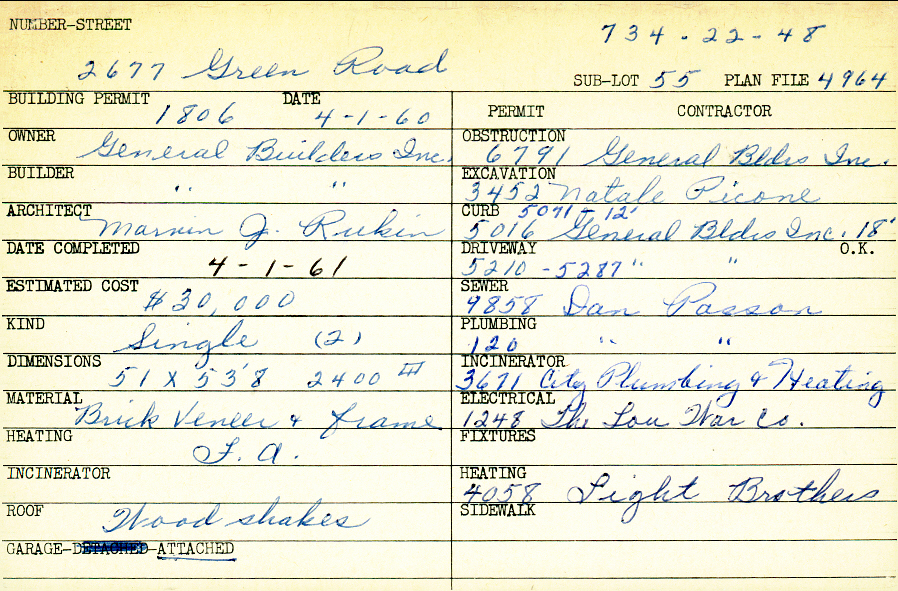 NUMBER-STREET
734-22-48
2677 Green Road
SUB-LOT 55 PLAN FILE 4964
BUILDING PERMIT DATE
1806 4-1-60
OWNER
General Builders Inc.
BUILDER
" "
ARCHITECT
Marvin J. Rukin
DATE COMPLETED
4-1-61
ESTIMATED COST
$30,000
KIND
Single (2)
DIMENSIONS
51 x 53'8 2400 III
MATERIAL
Brick Veneer & frame
HEATING
F. A.
INCINERATOR
ROOF
Wood shakes
GARAGE-DETACHED-ATTACHED
PERMIT CONTRACTOR
OBSTRUCTION
6791 General Bldrs Inc.
EXCAVATION
3452 Natale Picone
CURB 5071 - 12'
5016 General Bldrs Inc. 18'
DRIVEWAY O.K.
5210 - 5287 " "
SEWER
9858 Dan Passon
PLUMBING
120 " "
INCINERATOR
3671 City Plumbing & Heating
ELECTRICAL
1248 The Lou War Co.
FIXTURES
HEATING
4058 Light Brothers
SIDEWALK